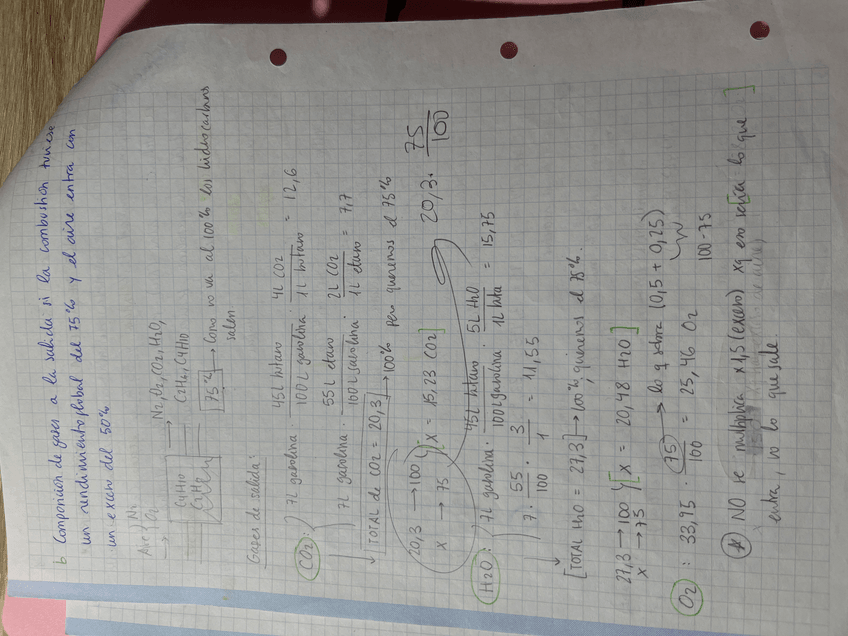 b Composición de gases a la salida si la combustión tuviese
un rendimiento global del 75% y el aire entra con
un exceso del 50%
Aire { N2
O2
→ N2, O2, CO2, H2O,
C2H6, C4H10
C4H10
C2H6
75% → Como no va al 100% los hidrocarburos
salen
Gases de salida:
CO2: 7L gasolina · 45L butano / 100L gasolina · 4L CO2 / 1L butano = 12,6
7L gasolina · 55L etano / 100L gasolina · 2L CO2 / 1L etano = 7,7
[TOTAL de CO2 = 20,3] → 100% pero queremos el 75%
20,3 → 100
x → 75 } x = 15,23 CO2] 20,3 · 75 / 100
H2O: 7L gasolina · 45L butano / 100L gasolina · 5L H2O / 1L buta = 15,75
7 · 55 / 100 · 3 / 1 = 11,55
[TOTAL H2O = 27,3] → 100%, queremos el 75%.
27,3 → 100
x → 75 } [x = 20,48 H2O]
O2: 33,95 · 75 / 100 = 25,46 O2
→ lo q sobra (0,5 + 0,25)
100-75
* NO se multiplica x1,5 (exceso) xq eso sería [lo que
entra, no lo que sale]